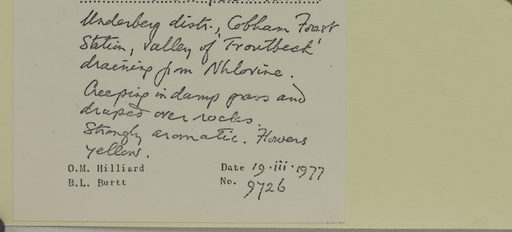 Underberg distr., Cobham Forest
Station, valley of 'Troutbeck'
draining from Nhlovine.
Creeping in damp grass and
draped over rocks.
Strongly aromatic. Flowers
yellow.
O.M. Hilliard Date 19·iii·1977
B.L. Burtt No. 9726